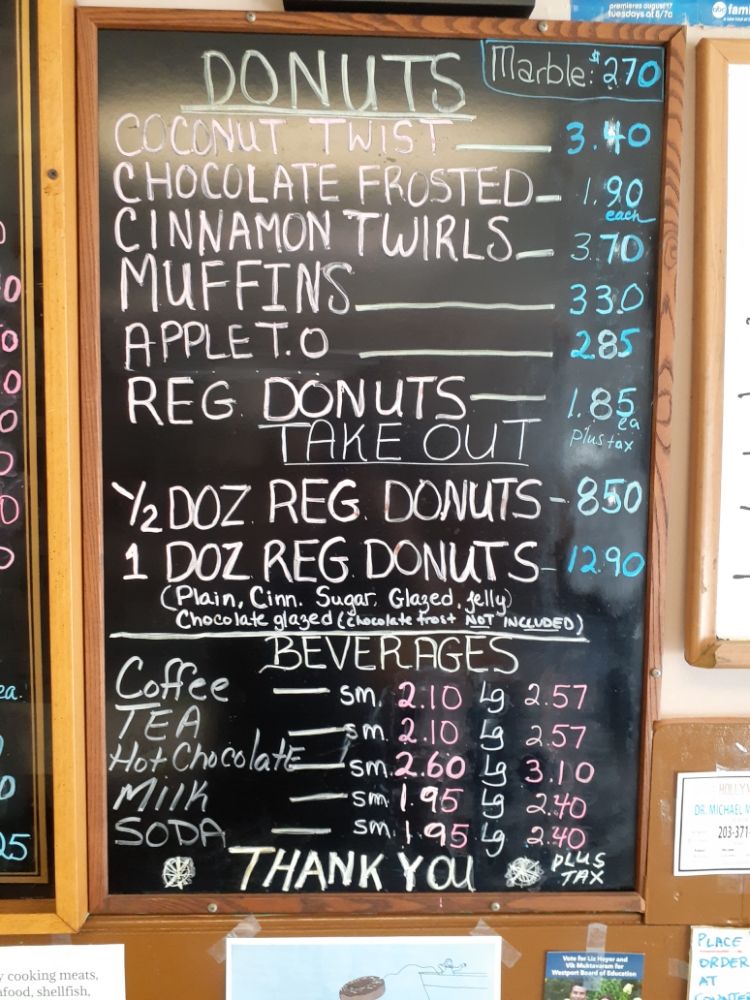 premieres august 17
tuesdays at 8/7c
abc fam
DONUTS
Marble: $270
COCONUT TWIST 3.40
CHOCOLATE FROSTED 1.90
each
CINNAMON TWIRLS 3.70
MUFFINS 330
APPLE T.O 2.85
REG. DONUTS 1.85
ea
Plus tax
TAKE OUT
1/2 DOZ. REG. DONUTS - 850
1 DOZ. REG. DONUTS - 12.90
(Plain, Cinn. Sugar, Glazed, Jelly)
Chocolate glazed (Chocolate frost NOT INCLUDED)
BEVERAGES
Coffee — sm. 2.10 Lg 2.57
TEA sm. 2.10 Lg 2.57
Hot Chocolate — sm. 2.60 Lg 3.10
Milk — sm. 1.95 Lg 2.40
SODA — sm. 1.95 Lg 2.40
THANK YOU
PLUS
TAX
ea.
25
HOLLYW
DR. MICHAEL M
203-371
PLACE
ORDER
AT
y cooking meats,
afood, shellfish,
Vote for Liz Heyer and
Vik Muktavaram for
Westport Board of Education